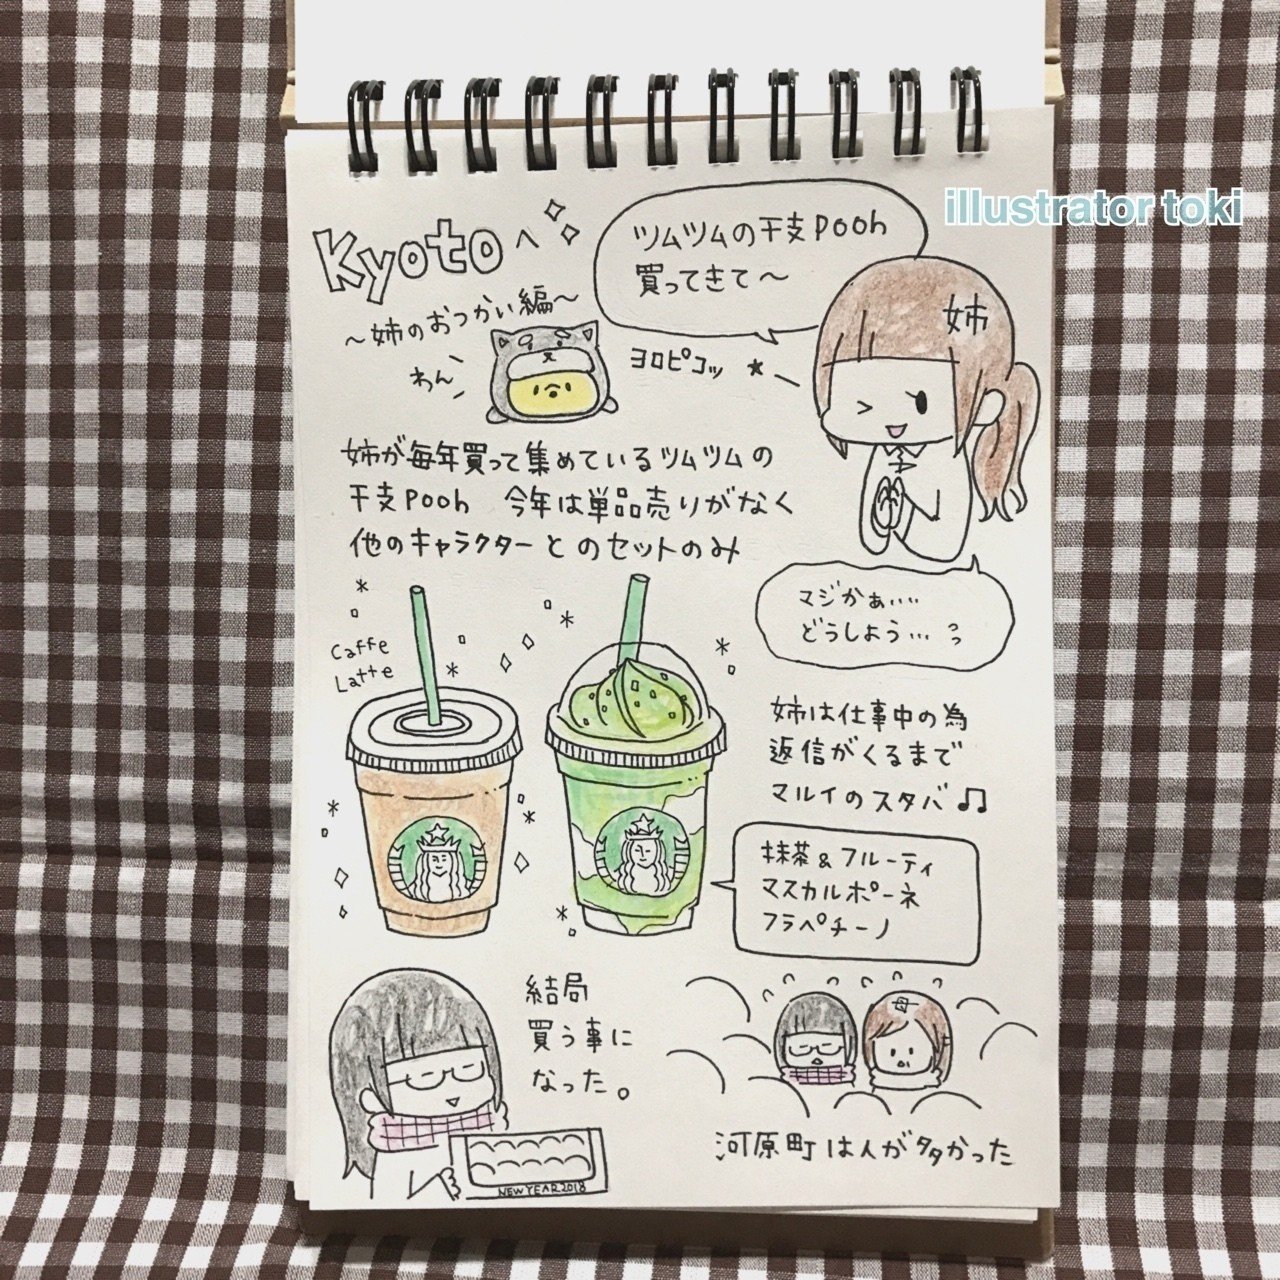 illustrator toki
Kyotoへ
〜姉のおつかい編〜
わん
ツムツムの干支pooh
買ってきて〜
姉
ヨロピコッ★
姉が毎年買って集めているツムツムの
干支pooh 今年は単品売りがなく
他のキャラクターとのセットのみ
マジかぁ....
どうしよう... っっ
Caffe
Latte
姉は仕事中の為
返信がくるまで
マルイのスタバ♫
抹茶&フルーティ
マスカルポーネ
フラペチーノ
結局
買う事に
なった。
NEW YEAR 2018
母
河原町は人が多かった